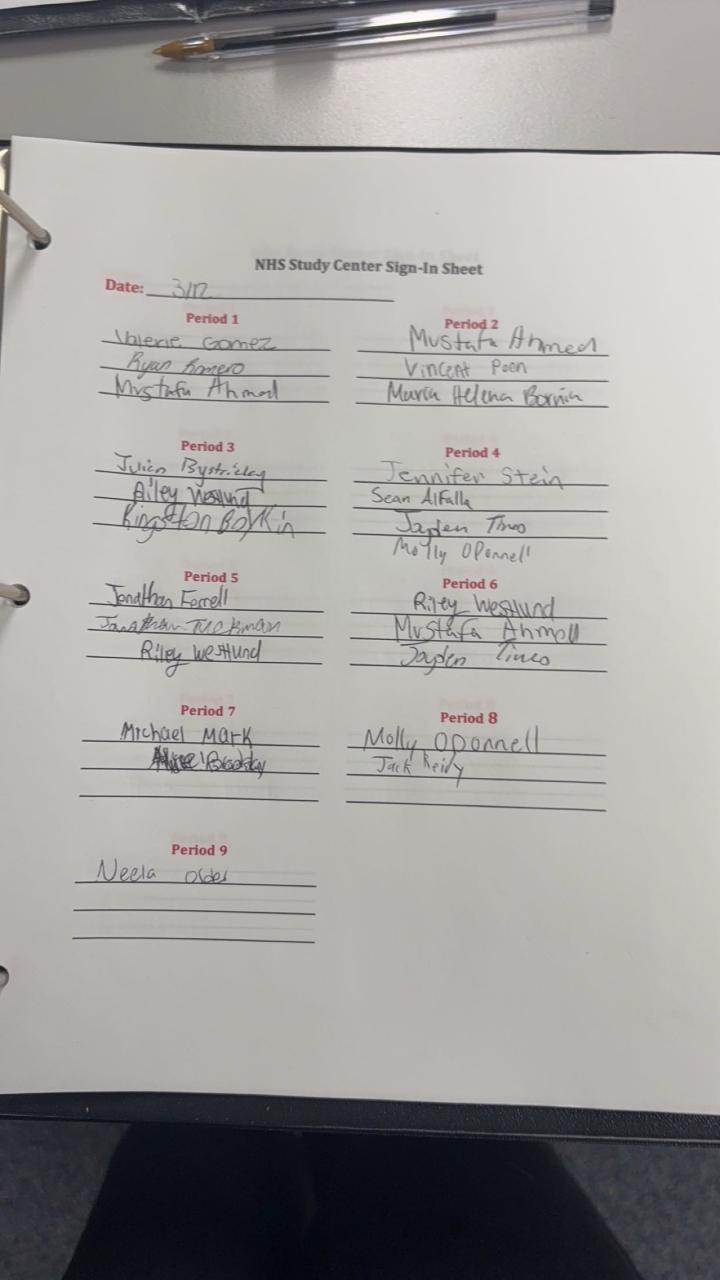 NHS Study Center Sign-In Sheet
Date: 3/12
Period 1
Valerie Gomez
Ryan Romero
Mustafa Ahmed
Period 2
Mustafa Ahmed
Vincent Poon
Maria Helena
Period 3
Julien
Riley Westlund
Kingston Boykin
Period 4
Jennifer Stein
Sean AlFalla
Jayden Tineo
Molly ODonnell
Period 5
Jonathan Ferrell
Jonathan Tuckman
Riley Westlund
Period 6
Riley Westlund
Mustafa Ahmed
Jayden Tineo
Period 7
Michael Mark
Period 8
Molly ODonnell
Jack Reidy
Period 9
Neela